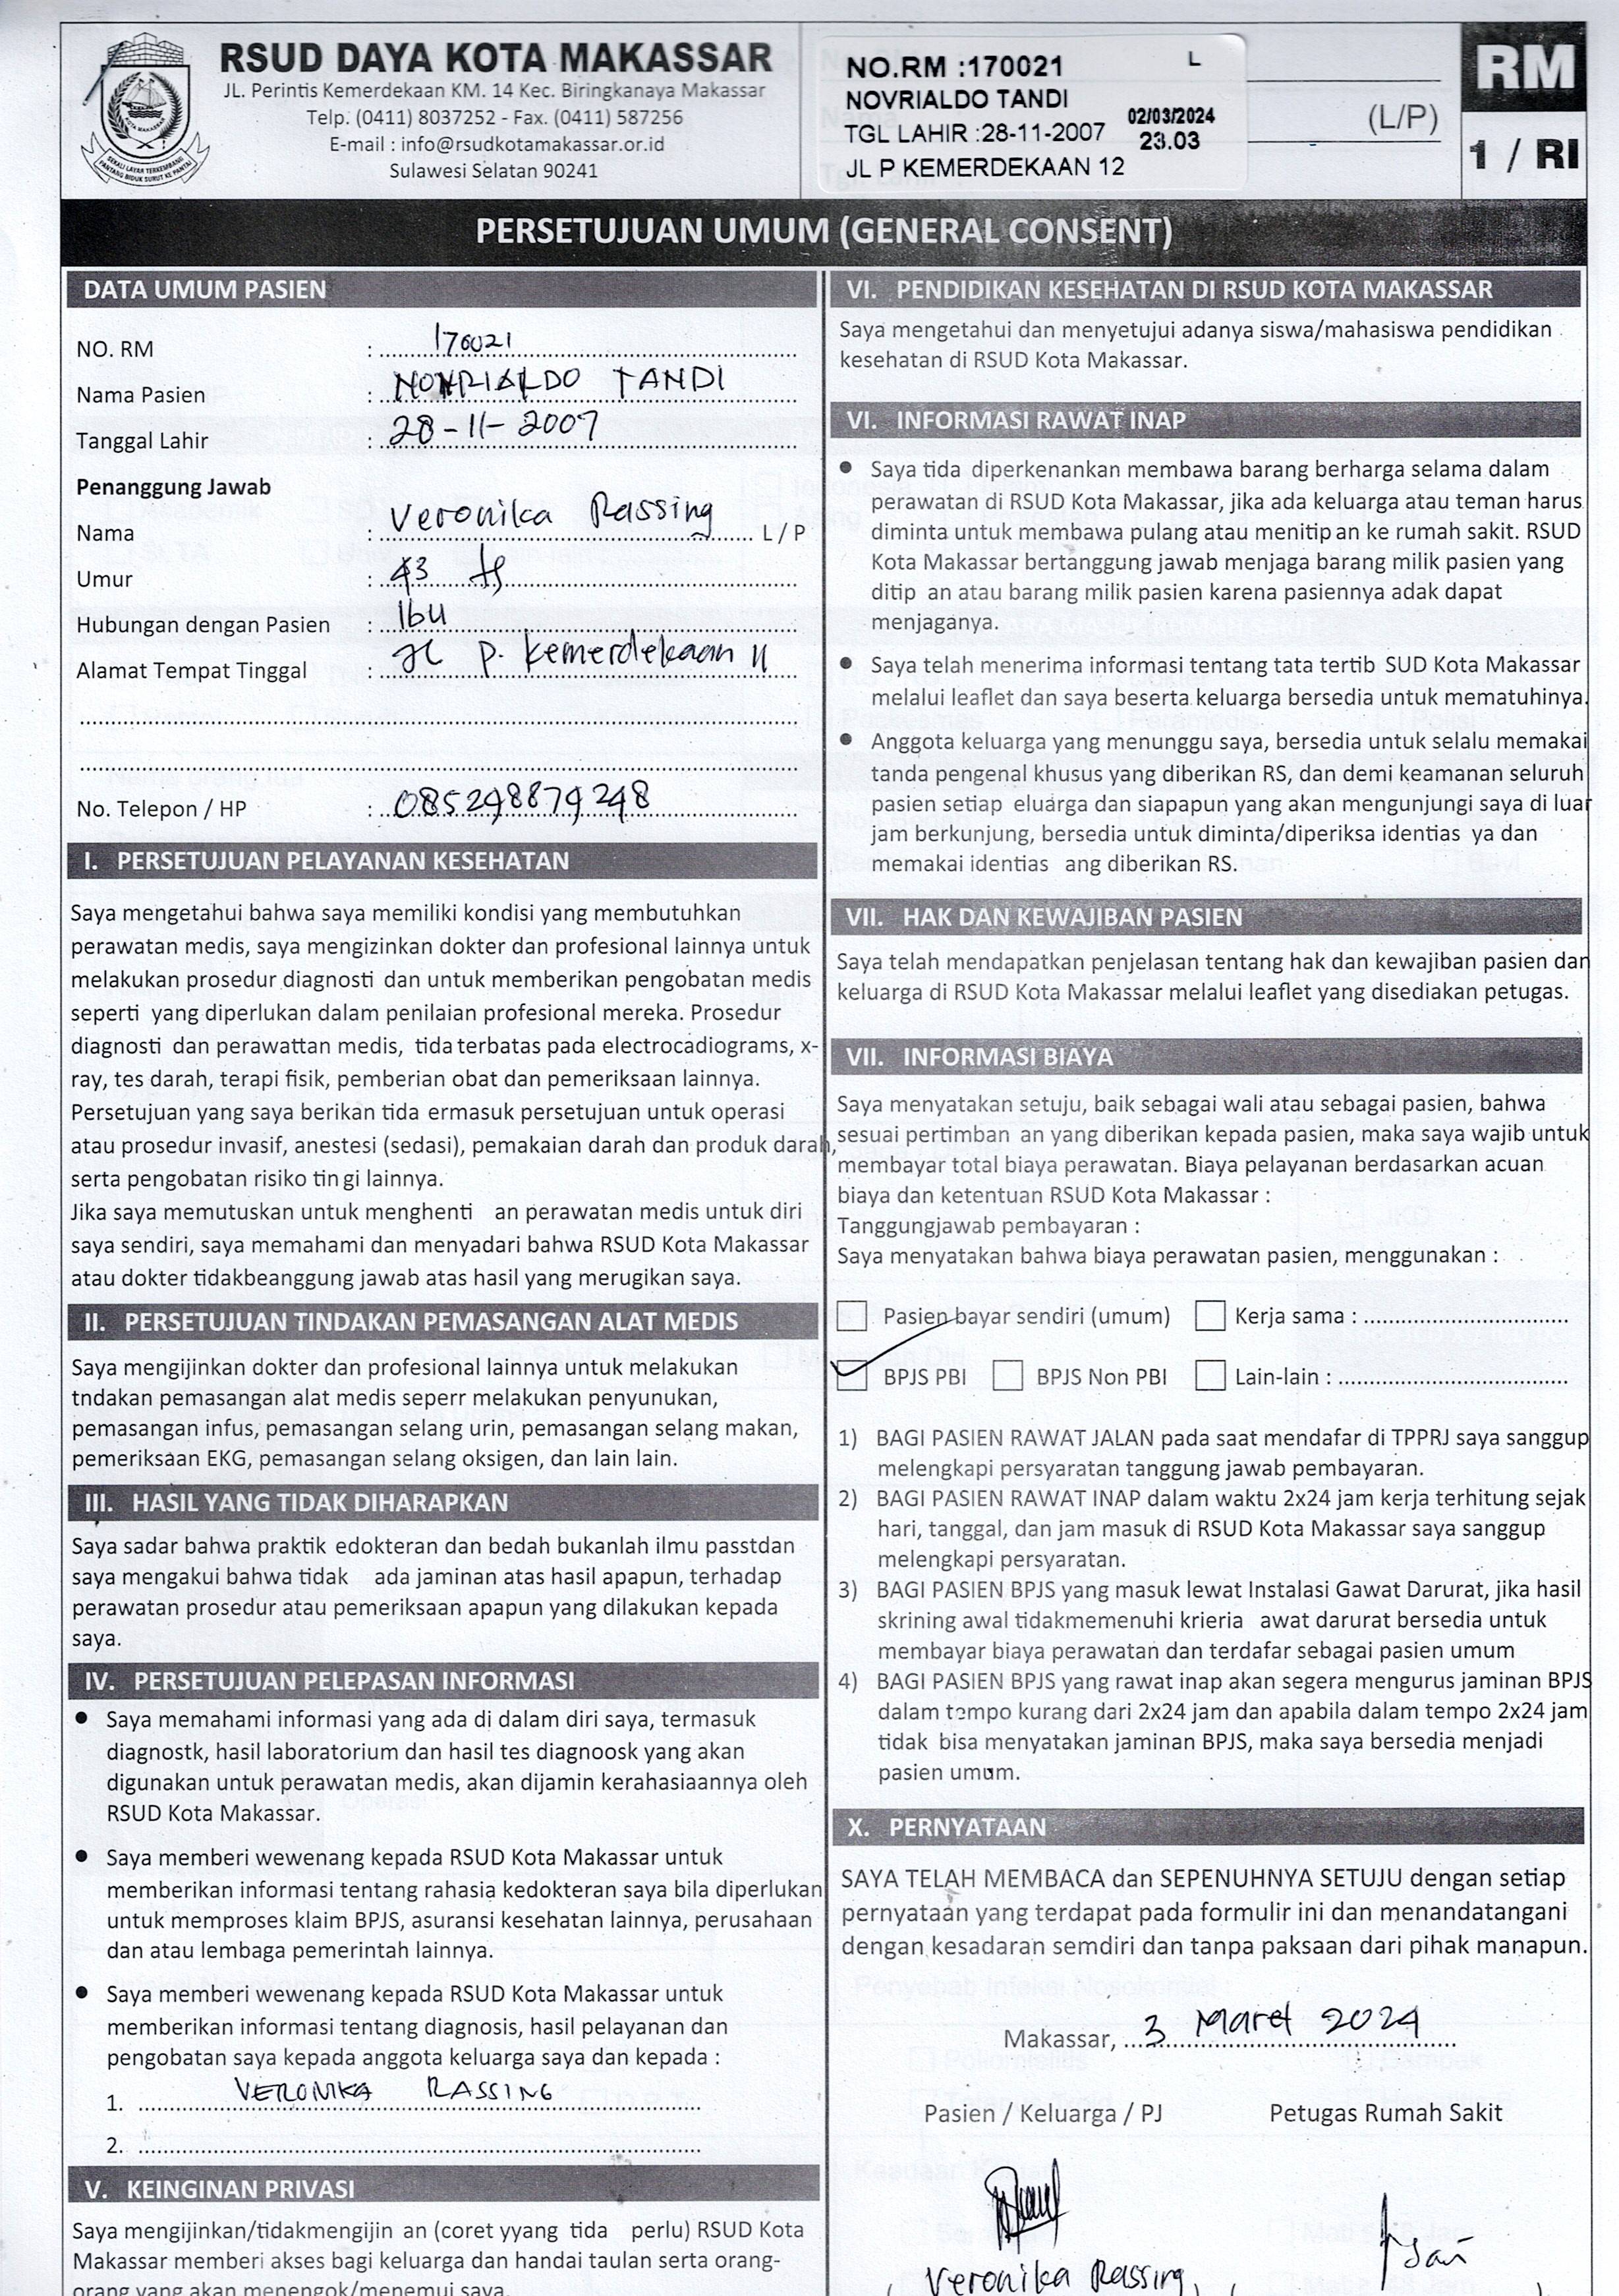 RSUD DAYA KOTA MAKASSAR
JL. Perintis Kemerdekaan KM. 14 Kec. Biringkanaya Makassar
Telp. (0411) 8037252 - Fax. (0411) 587256
E-mail : info@rsudkotamakassar.or.id
Sulawesi Selatan 90241
KOTA MAKASSAR
SEKALI LAYAR TERKEMBANG PANTANG BIDUK SURUT KE PANTAI
NO.RM :170021 L
NOVRIALDO TANDI
TGL LAHIR :28-11-2007 02/03/2024
23.03
JL P KEMERDEKAAN 12
(L/P)
RM
1 / RI
PERSETUJUAN UMUM (GENERAL CONSENT)
DATA UMUM PASIEN
NO. RM : 170021
Nama Pasien : NOVRIALDO TANDI
Tanggal Lahir : 28-11-2007
Penanggung Jawab
Nama : Veronika Rassing L / P
Umur : 43
Hubungan dengan Pasien : Ibu
Alamat Tempat Tinggal : Jl P. Kemerdekaan 11
No. Telepon / HP : 085298879248
I. PERSETUJUAN PELAYANAN KESEHATAN
Saya mengetahui bahwa saya memiliki kondisi yang membutuhkan
perawatan medis, saya mengizinkan dokter dan profesional lainnya untuk
melakukan prosedur diagnosti dan untuk memberikan pengobatan medis
seperti yang diperlukan dalam penilaian profesional mereka. Prosedur
diagnosti dan perawattan medis, tida terbatas pada electrocadiograms, x-
ray, tes darah, terapi fisik, pemberian obat dan pemeriksaan lainnya.
Persetujuan yang saya berikan tida ermasuk persetujuan untuk operasi
atau prosedur invasif, anestesi (sedasi), pemakaian darah dan produk darah,
serta pengobatan risiko tin gi lainnya.
Jika saya memutuskan untuk menghenti an perawatan medis untuk diri
saya sendiri, saya memahami dan menyadari bahwa RSUD Kota Makassar
atau dokter tidakbeanggung jawab atas hasil yang merugikan saya.
II. PERSETUJUAN TINDAKAN PEMASANGAN ALAT MEDIS
Saya mengijinkan dokter dan profesional lainnya untuk melakukan
tndakan pemasangan alat medis seperr melakukan penyunukan,
pemasangan infus, pemasangan selang urin, pemasangan selang makan,
pemeriksaan EKG, pemasangan selang oksigen, dan lain lain.
III. HASIL YANG TIDAK DIHARAPKAN
Saya sadar bahwa praktik edokteran dan bedah bukanlah ilmu passtdan
saya mengakui bahwa tidak ada jaminan atas hasil apapun, terhadap
perawatan prosedur atau pemeriksaan apapun yang dilakukan kepada
saya.
IV. PERSETUJUAN PELEPASAN INFORMASI
● Saya memahami informasi yang ada di dalam diri saya, termasuk
diagnostk, hasil laboratorium dan hasil tes diagnoosk yang akan
digunakan untuk perawatan medis, akan dijamin kerahasiaannya oleh
RSUD Kota Makassar.
● Saya memberi wewenang kepada RSUD Kota Makassar untuk
memberikan informasi tentang rahasia kedokteran saya bila diperlukan
untuk memproses klaim BPJS, asuransi kesehatan lainnya, perusahaan
dan atau lembaga pemerintah lainnya.
● Saya memberi wewenang kepada RSUD Kota Makassar untuk
memberikan informasi tentang diagnosis, hasil pelayanan dan
pengobatan saya kepada anggota keluarga saya dan kepada :
1. VERONIKA RASSING
2.
V. KEINGINAN PRIVASI
Saya mengijinkan/tidakmengijin an (coret yyang tida perlu) RSUD Kota
Makassar memberi akses bagi keluarga dan handai taulan serta orang-
orang yang akan menengok/menemui saya.
VI. PENDIDIKAN KESEHATAN DI RSUD KOTA MAKASSAR
Saya mengetahui dan menyetujui adanya siswa/mahasiswa pendidikan
kesehatan di RSUD Kota Makassar.
VI. INFORMASI RAWAT INAP
● Saya tida diperkenankan membawa barang berharga selama dalam
perawatan di RSUD Kota Makassar, jika ada keluarga atau teman harus
diminta untuk membawa pulang atau menitip an ke rumah sakit. RSUD
Kota Makassar bertanggung jawab menjaga barang milik pasien yang
ditip an atau barang milik pasien karena pasiennya adak dapat
menjaganya.
● Saya telah menerima informasi tentang tata tertib SUD Kota Makassar
melalui leaflet dan saya beserta keluarga bersedia untuk mematuhinya.
● Anggota keluarga yang menunggu saya, bersedia untuk selalu memakai
tanda pengenal khusus yang diberikan RS, dan demi keamanan seluruh
pasien setiap eluarga dan siapapun yang akan mengunjungi saya di luar
jam berkunjung, bersedia untuk diminta/diperiksa identias ya dan
memakai identias ang diberikan RS.
VII. HAK DAN KEWAJIBAN PASIEN
Saya telah mendapatkan penjelasan tentang hak dan kewajiban pasien dan
keluarga di RSUD Kota Makassar melalui leaflet yang disediakan petugas.
VII. INFORMASI BIAYA
Saya menyatakan setuju, baik sebagai wali atau sebagai pasien, bahwa
sesuai pertimban an yang diberikan kepada pasien, maka saya wajib untuk
membayar total biaya perawatan. Biaya pelayanan berdasarkan acuan
biaya dan ketentuan RSUD Kota Makassar :
Tanggungjawab pembayaran :
Saya menyatakan bahwa biaya perawatan pasien, menggunakan :
Pasien bayar sendiri (umum) Kerja sama :
BPJS PBI BPJS Non PBI Lain-lain :
1) BAGI PASIEN RAWAT JALAN pada saat mendafar di TPPRJ saya sanggup
melengkapi persyaratan tanggung jawab pembayaran.
2) BAGI PASIEN RAWAT INAP dalam waktu 2x24 jam kerja terhitung sejak
hari, tanggal, dan jam masuk di RSUD Kota Makassar saya sanggup
melengkapi persyaratan.
3) BAGI PASIEN BPJS yang masuk lewat Instalasi Gawat Darurat, jika hasil
skrining awal tidakmemenuhi krieria awat darurat bersedia untuk
membayar biaya perawatan dan terdafar sebagai pasien umum
4) BAGI PASIEN BPJS yang rawat inap akan segera mengurus jaminan BPJS
dalam tempo kurang dari 2x24 jam dan apabila dalam tempo 2x24 jam
tidak bisa menyatakan jaminan BPJS, maka saya bersedia menjadi
pasien umum.
X. PERNYATAAN
SAYA TELAH MEMBACA dan SEPENUHNYA SETUJU dengan setiap
pernyataan yang terdapat pada formulir ini dan menandatangani
dengan kesadaran semdiri dan tanpa paksaan dari pihak manapun.
Makassar, 3 Maret 2024
Pasien / Keluarga / PJ Petugas Rumah Sakit
Veronika Rassing